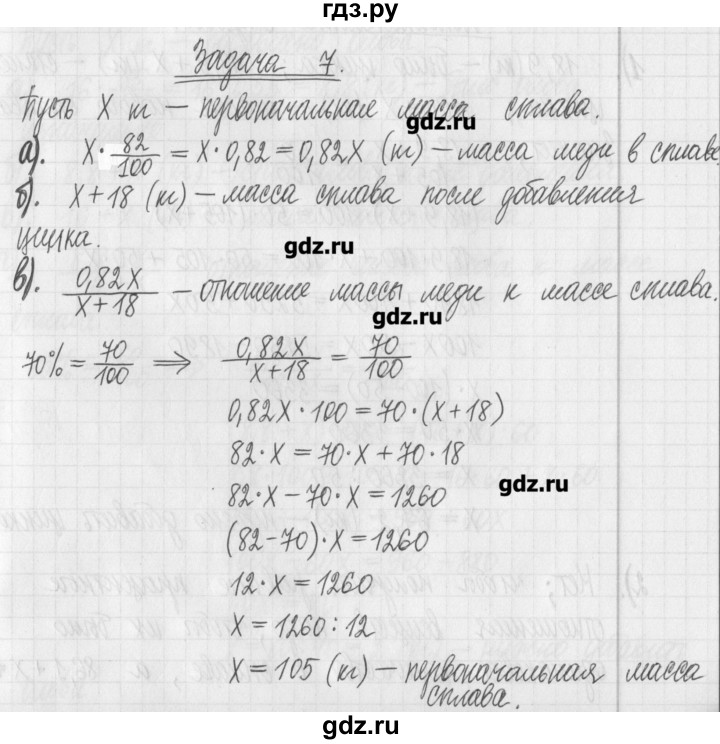 гдз.ру
Задача 7.
Пусть X т — первоначальная масса сплава.
gdz.ru
а). X · 82/100 = X · 0,82 = 0,82X (кг) — масса меди в сплаве.
б). X + 18 (кг) — масса сплава после добавления
цинка.
gdz.ru
в). 0,82X/X + 18 — отношение массы меди к массе сплава.
gdz.ru
70% = 70/100 ⟹ 0,82X/X + 18 = 70/100
0,82X · 100 = 70 · (X + 18)
82 · X = 70 · X + 70 · 18
82 · X — 70 · X = 1260
gdz.ru
(82 - 70) · X = 1260
12 · X = 1260
X = 1260 : 12
X = 105 (кг) — первоначальная масса
сплава.
gdz.ru